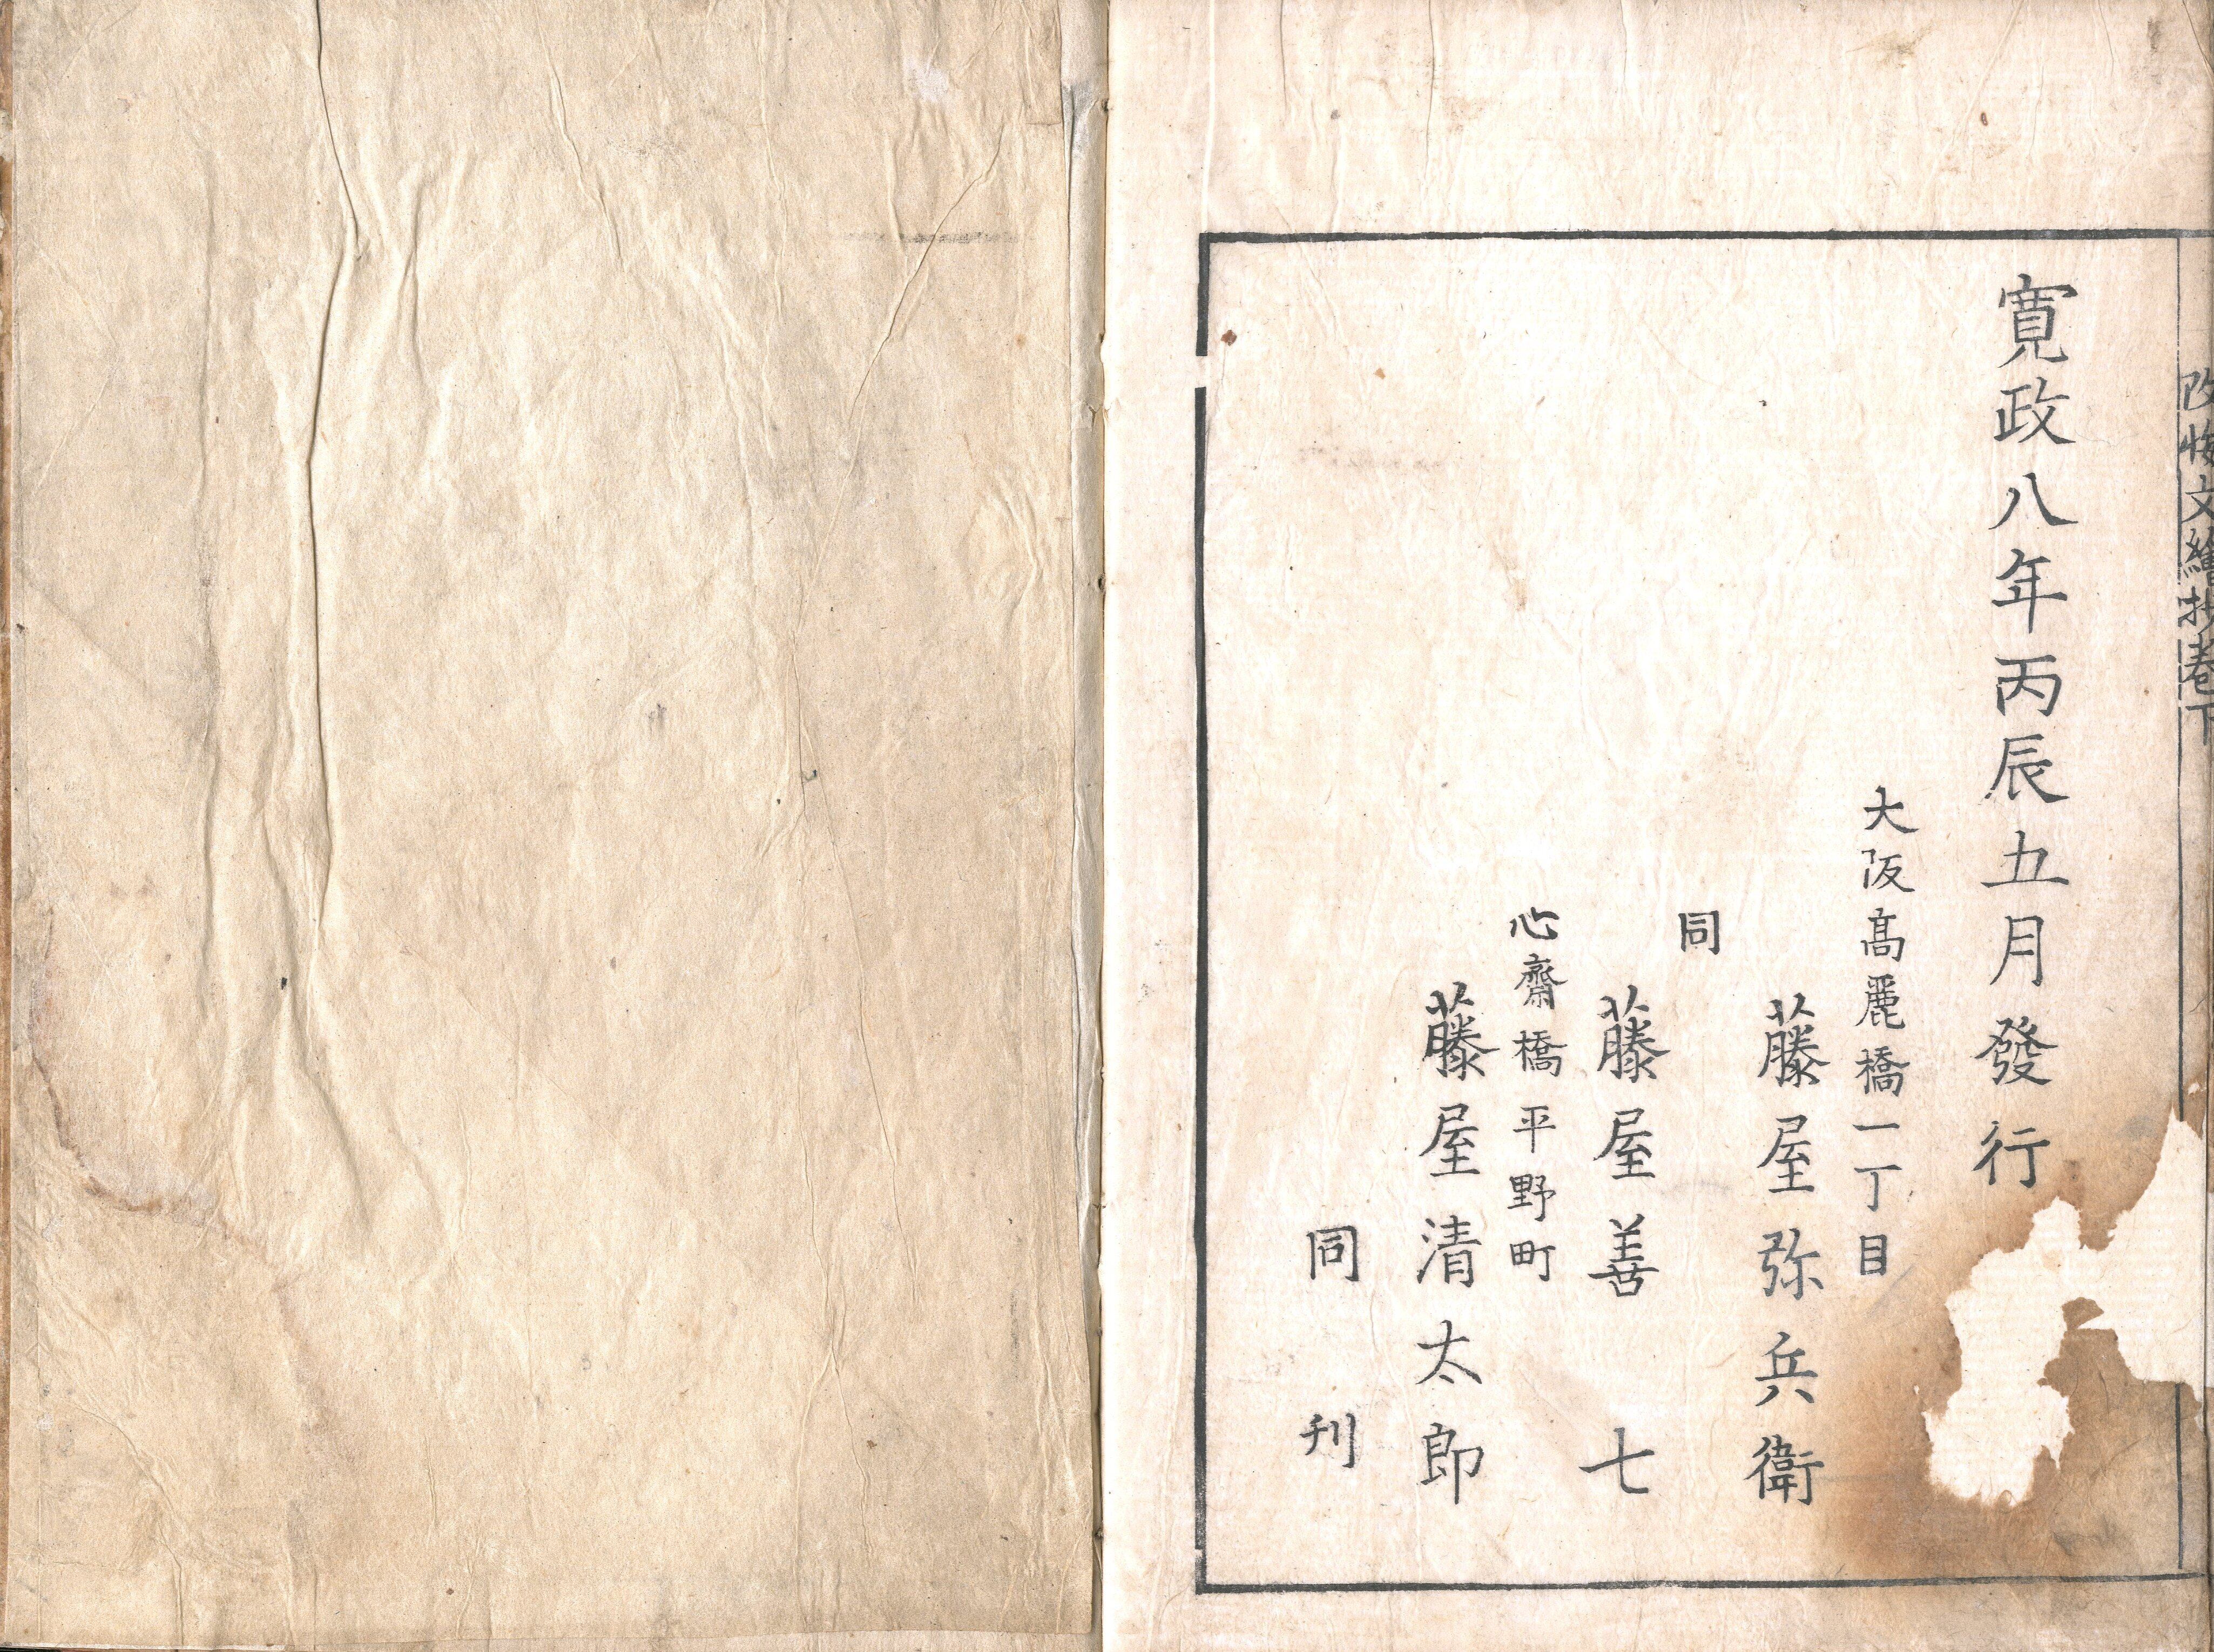 改悔文繪抄卷下
寛政八年丙辰五月發行
大阪髙麗橋一丁目
藤屋弥兵衛
同
藤屋善七
心齋橋平野町
藤屋清太郎
同刊